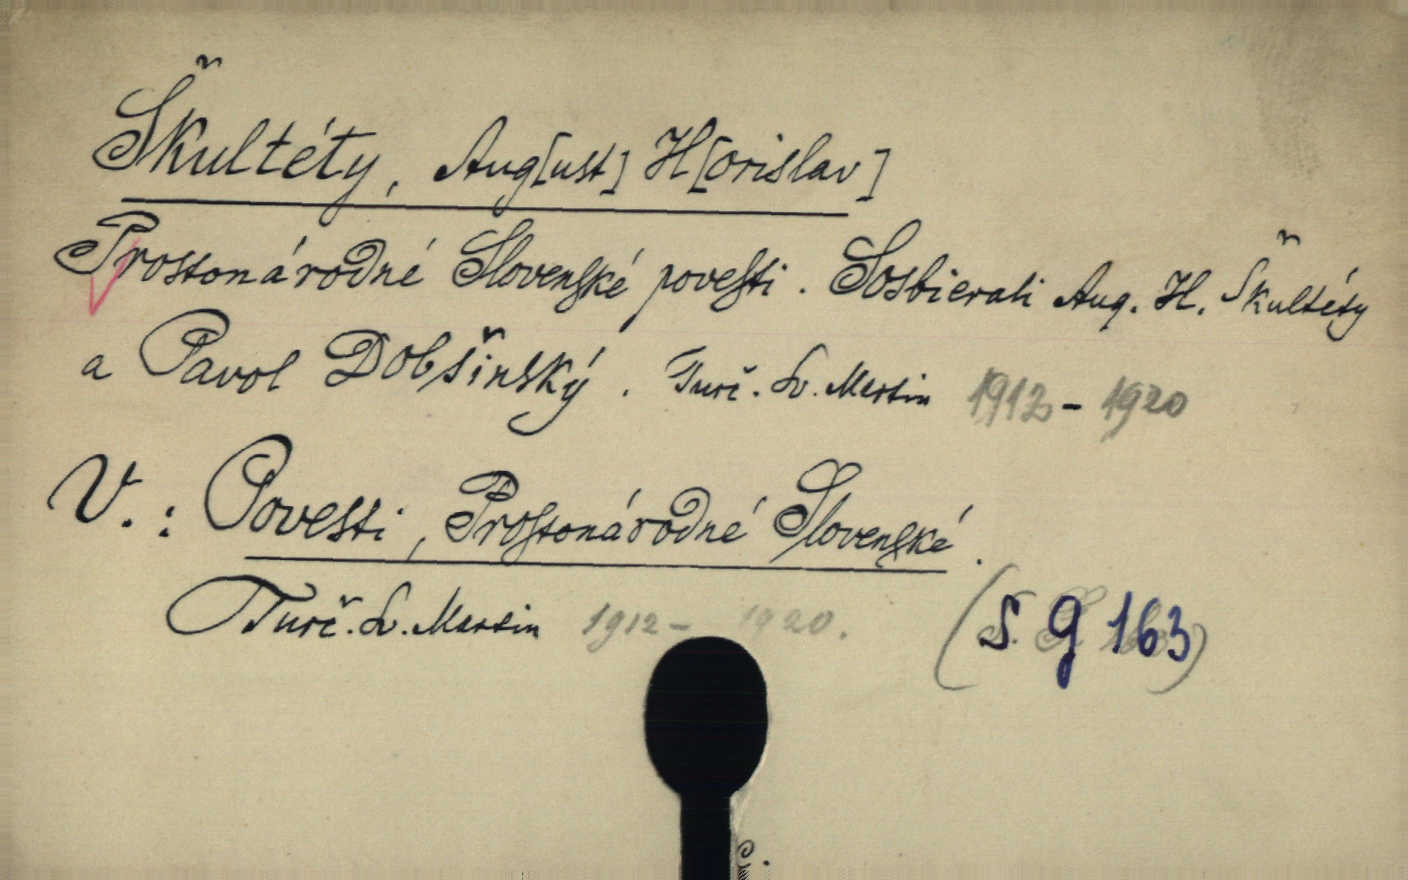 Škultéty, Aug[ust] H[orislav]
Prostonárodné Slovenské povesti. Sosbierali Aug. H. Škultéty
a Pavol Dobšinský. Turč. Sv. Martin 1912 - 1920
V.: Povesti, Prostonárodné Slovenské.
Turč. Sv. Martin 1912 - 1920.
(S. G 163)